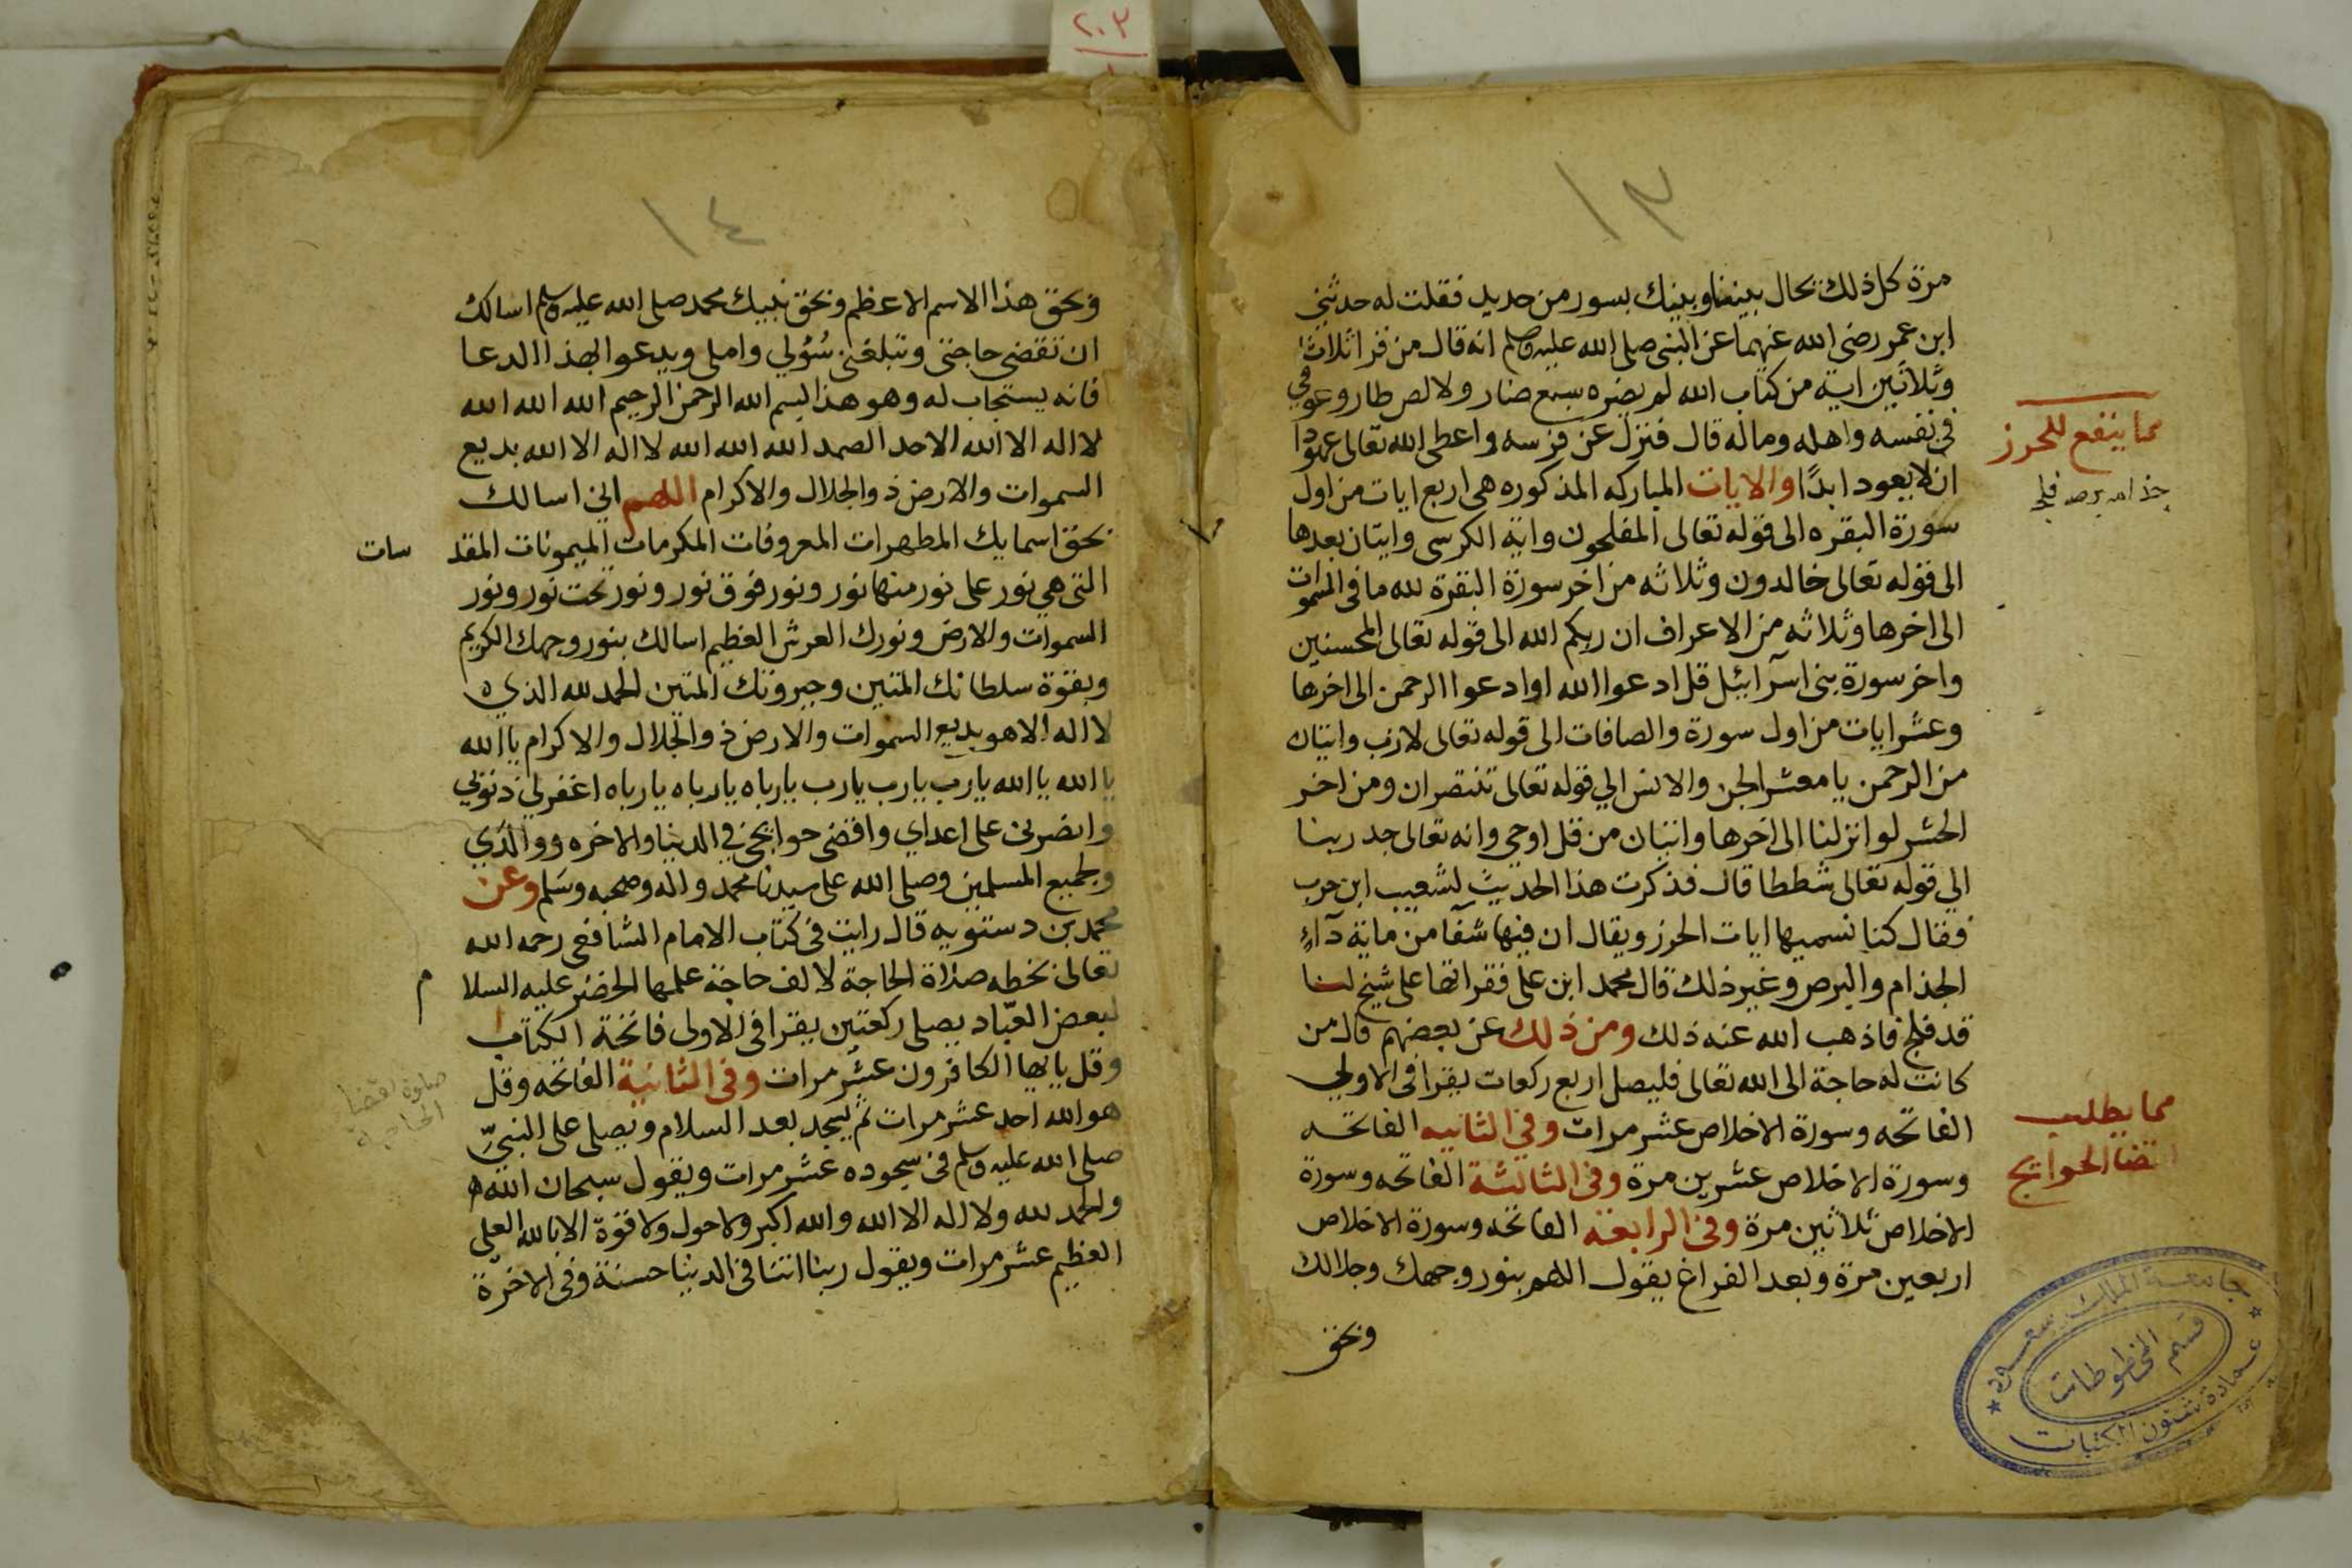 ٢٠٣
١٣
مرة كل ذلك يحال بيننا وبينك بسور من حديد فقلت له حدثني
ابن عمر رضى الله عنهما عن النبى صلى الله عليه وسلم انه قال من قرا ثلاثا
وثلاثين اية من كتاب الله لم يضره سبع ضار ولا لص طار وعوفي
في نفسه واهله وماله قال فنزل عن فرسه واعطى الله تعالى عهودا
ان لا يعود ابدًا والايات المباركه المذكوره هي اربع ايات من اول
سورة البقره الى قوله تعالى المفلحون واية الكرسى وايتان بعدها
الى قوله تعالى خالدون وثلاثه من اخر سورة البقرة لله ما فى السموات
الى اخرها وثلاثه من الاعراف ان ربكم الله الى قوله تعالى المحسنين
واخر سورة بنى اسرآئيل قل ادعوا الله اوادعوا الرحمن الى اخرها
وعشر ايات من اول سورة والصافات الى قوله تعالى لازب وايتان
من الرحمن يا معشر الجن والانس الي قوله تعالى تنتصران ومن اخر
الحشر لو انزلنا الى اخرها وايتان من قل اوحي وانه تعالى جد ربنا
الي قوله تعالى شططا قال فذكرت هذا الحديث لشعيب ابن حرب
فقال كنا نسميها ايات الحرز ويقال ان فيها شفآ من ماية دآءٍ
الجذام والبرص وغير ذلك قال محمد ابن على فقراتها على شيخ لنا
قد فلج فاذهب الله عنه ذلك ومن ذلك عن بعضهم قال من
كانت له حاجة الى الله تعالى فليصل اربع ركعات يقرا فى الاولي
الفاتحه وسورة الاخلاص عشر مرات وفي الثانيه الفاتحه
وسورة الاخلاص عشرين مرة وفى الثالثة الفاتحه وسورة
الاخلاص ثلاثين مرة وفى الرابعة الفاتحه وسورة الاخلاص
اربعين مرة وبعد الفراغ يقول اللهم بنور وجهك وجلالك
وبحق
مما ينفع للحرز
جذام برص فلج
مما يطلب
لقضا الحوايج
جامعة الملك سعود
قسم المخطوطات
عمادة شئون المكتبات
١٤
وبحق هذا الاسم الاعظم وبحق نبيك محمد صلى الله عليه وسلم اسالك
ان تقضى حاجتى وتبلغنى سُؤلي واملى ويدعوا بهذا الدعا
فانه يستجاب له وهو هذا بسم الله الرحمن الرحيم الله الله الله
لا اله الا الله الاحد الصمد الله الله الله لا اله الا الله بديع
السموات والارض ذو الجلال والاكرام اللهم انى اسالك
بحق اسمايك المطهرات المعروفات المكرمات الميمونات المقد سات
التى هي نور على نور منها نور ونور فوق نور ونور تحت نور ونور
السموات والارض ونورك العرش العظيم اسالك بنور وجهك الكريم
وبقوة سلطانك المتين وجبروتك المتين الحمد لله الذي
لا اله الا هو بديع السموات والارض ذو الجلال والاكرام يا الله
يا الله يا الله يا رب يا رب يا رب يارباه يارباه يارباه اغفرلي ذنوبي
وانصرنى على اعداي واقضى حوايجى في الدنيا والاخره ووالدي
ولجميع المسلمين وصلى الله على سيدنا محمد واله وصحبه وسلم وعن
محمد بن دستويه قال رايت فى كتاب الامام الشافعى رحمه الله
تعالى بخطه صلاة الحاجة لالف حاجة علمها الخضر عليه السلا م
لبعض العبّاد يصلى ركعتين يقرا فى الاولى فاتحة الكتاب
وقل يايها الكافرون عشر مرات وفى الثانية الفاتحه وقل
هو الله احد عشر مرات ثم يسجد بعد السلام ويصلى على النبيّ
صلى الله عليه وسلم فى سجوده عشر مرات ويقول سبحان الله
والحمد لله ولا اله الا الله والله اكبر ولا حول ولا قوة الا بالله العلى
العظيم عشر مرات ويقول ربنا اتنا فى الدنيا حسنة وفى الاخرة
صلوة لقضا
الحاجة